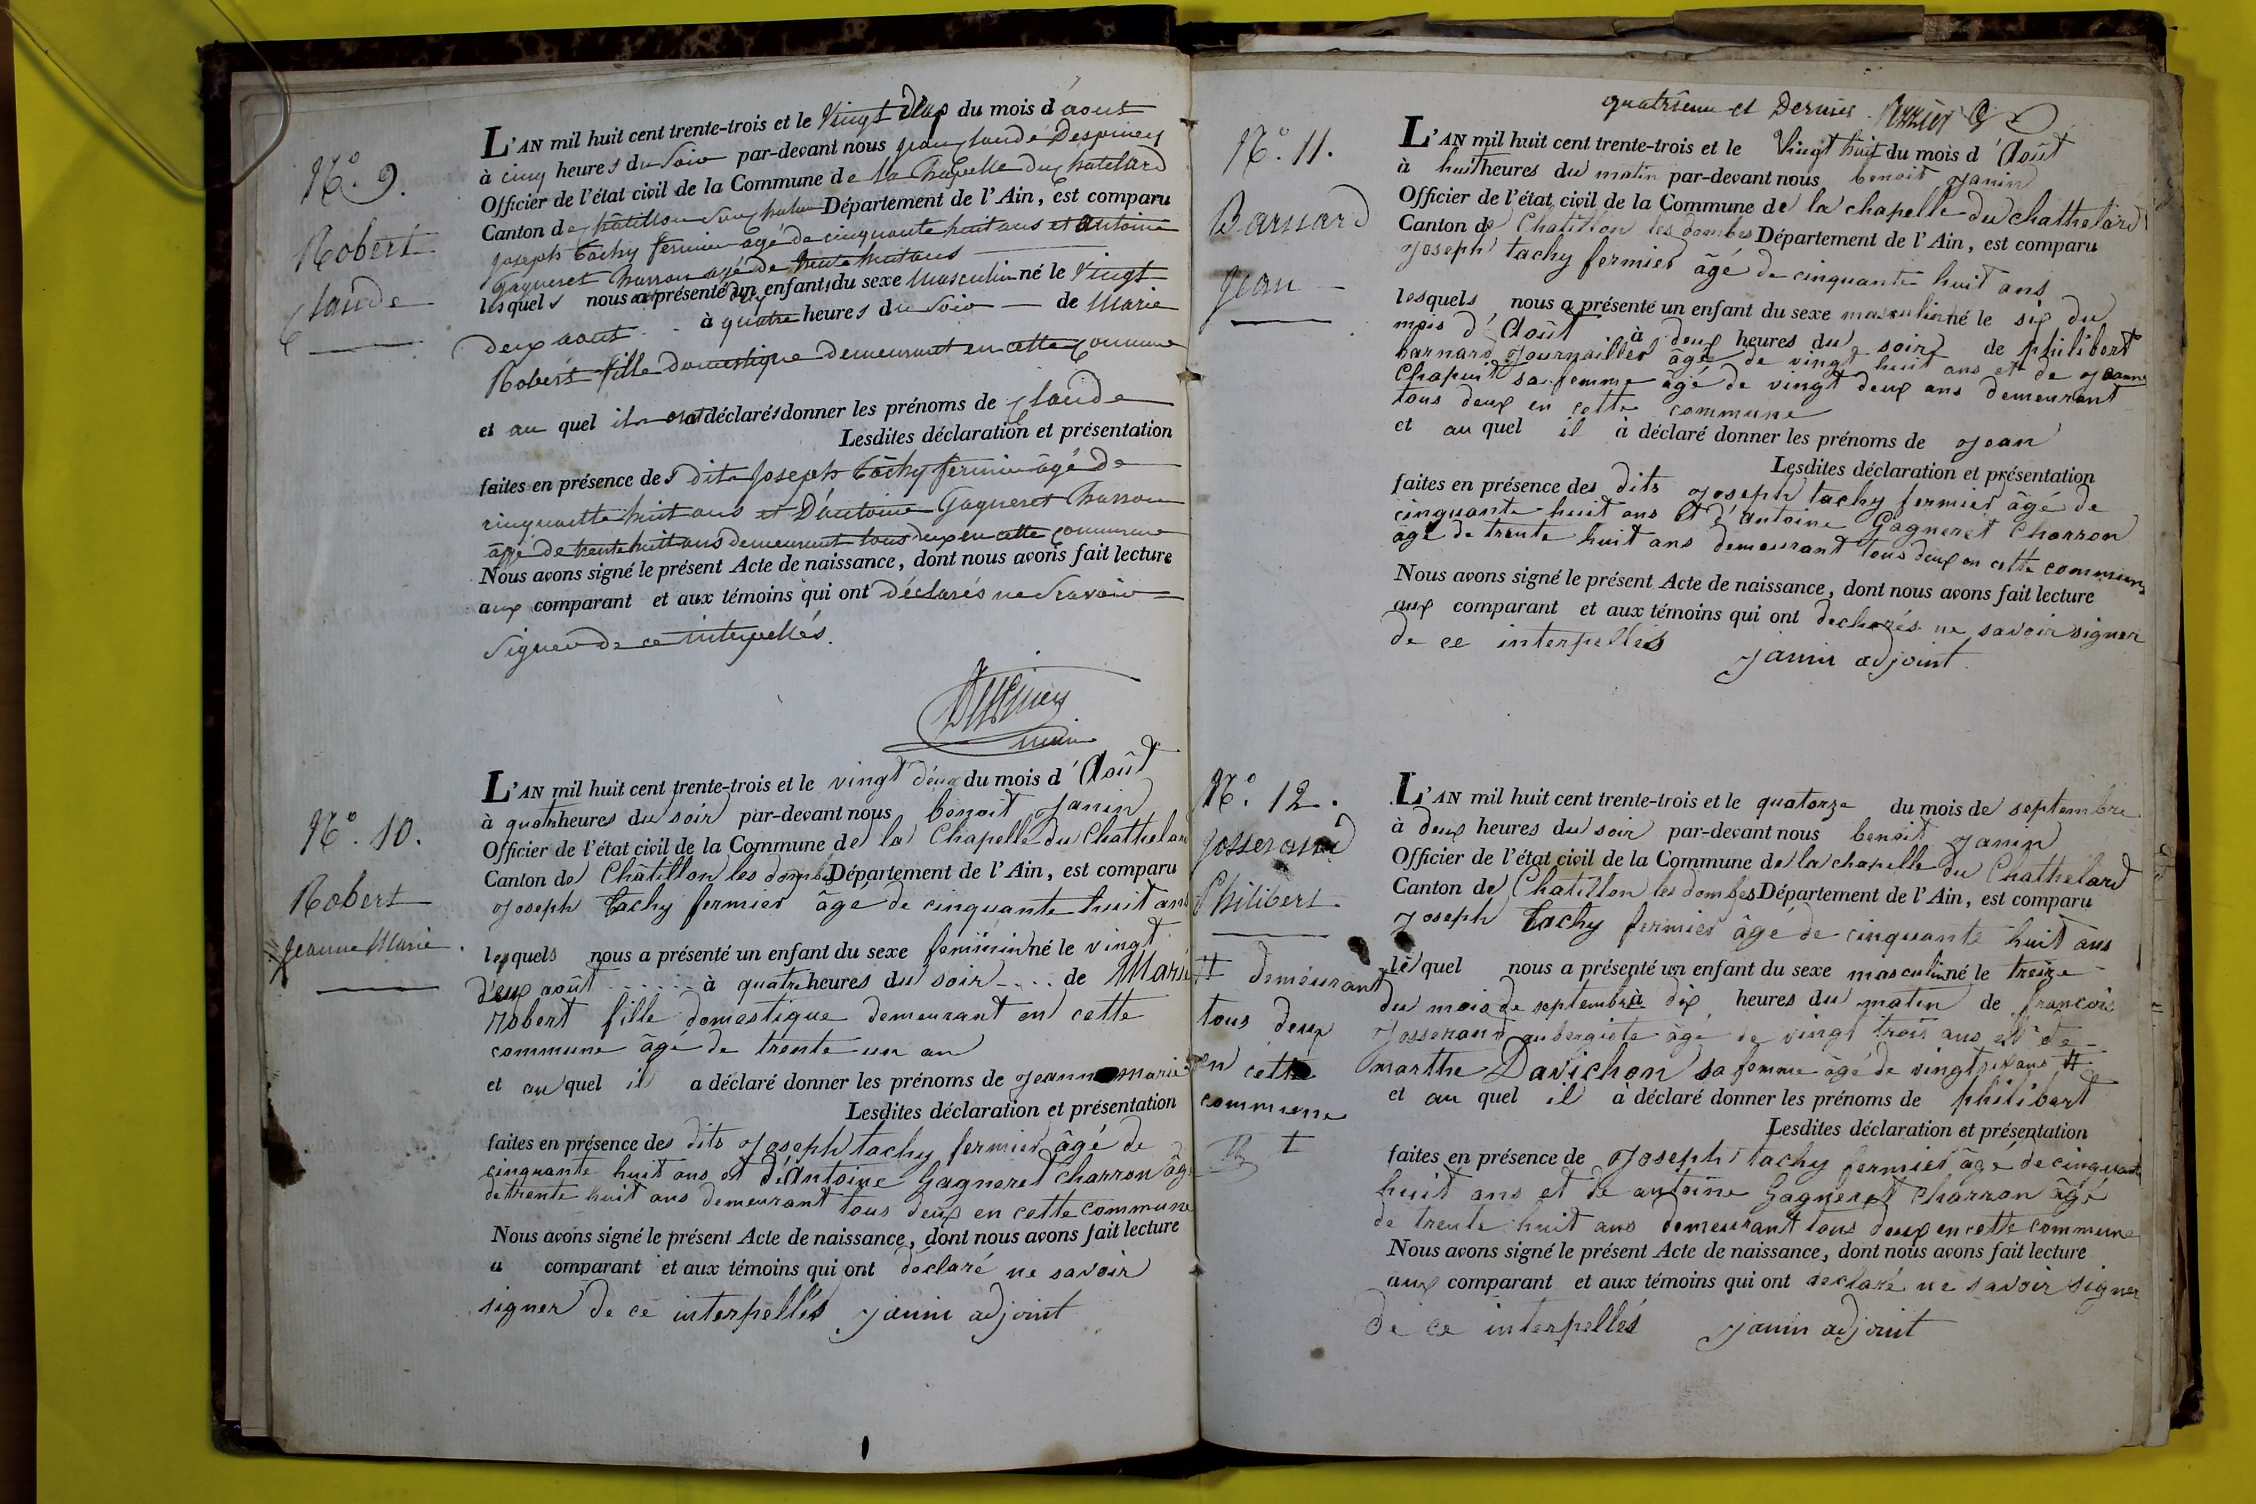 N.° 9.
Robert
Claude
L'AN mil huit cent trente-trois et le Vingt deux du mois d'aout
à cinq heures du Soir par-devant nous jean Claude Despiney
Officier de l'état civil de la Commune de la Chapelle du Chatelard
Canton de Châtillon Département de l'Ain, est comparu
joseph tachy fermier agé de cinquante huit ans et antoine
Gagneret charron agé de trente huit ans
lesquels nous a présenté un enfant du sexe Masculin né le Vingt
deux aout à quatre heures du Soir de Marie
Robert fille domestique demeurant en cette commune
et au quel ils ont déclarés donner les prénoms de Claude
Lesdites déclaration et présentation
faites en présence des dits Joseph tachy fermier âgé de
cinquante huit ans et D'antoine Gagneret Charron
âgé de trente huit ans demeurant tous deux en cette commune
Nous avons signé le présent Acte de naissance, dont nous avons fait lecture
aux comparant et aux témoins qui ont déclarés ne Scavoir
Signer de ce interpellés.
Despiney
N.° 10.
Robert
Jeanne Marie
L'AN mil huit cent trente-trois et le vingt deux du mois d'Août
à quatre heures du soir par-devant nous benoit janin
Officier de l'état civil de la Commune de la Chapelle du Chathelard
Canton de Châtillon les dombes Département de l'Ain, est comparu
joseph tachy fermier âgé de cinquante huit ans
lesquels nous a présenté un enfant du sexe feminin né le vingt
deux août à quatre heures du soir de Marie
robert fille domestique demeurant en cette
commune âgé de trente un an
et au quel il a déclaré donner les prénoms de jeanne marie
Lesdites déclaration et présentation
faites en présence des dits joseph tachy fermier âgé de
cinquante huit ans et d'Antoine Gagneret charron âgé
de trente huit ans demeurant tous deux en cette commune
Nous avons signé le présent Acte de naissance, dont nous avons fait lecture
au comparant et aux témoins qui ont déclaré ne savoir
signer de ce interpellés janin adjoint
quatrième et Dernier
N.° 11.
Barnard
Jean
L'AN mil huit cent trente-trois et le Vingt huit du mois d'Août
à huit heures du matin par-devant nous benoit janin
Officier de l'état civil de la Commune de la chapelle du chathelard
Canton de Chatillon les dombes Département de l'Ain, est comparu
joseph tachy fermier âgé de cinquante huit ans
lesquels nous a présenté un enfant du sexe masculin né le six du
mois d'Août à deux heures du soir de philibert
barnard journaillier âgé de vingt huit ans et de jeanne
Chapuit sa femme âgé de vingt deux ans demeurant
tous deux en cette commune
et au quel il à déclaré donner les prénoms de jean
Lesdites déclaration et présentation
faites en présence des dits joseph tachy fermier âgé de
cinquante huit ans et d'antoine Gagneret Charron
âgé de trente huit ans demeurant tous deux en cette commune
Nous avons signé le présent Acte de naissance, dont nous avons fait lecture
aux comparant et aux témoins qui ont declarés ne savoir signer
de ce interpellés janin adjoint
N.° 12.
Josserand
Philibert
# demeurant
tous deux
en cette
commune
L'AN mil huit cent trente-trois et le quatorze du mois de septembre
à deux heures du soir par-devant nous benoit janin
Officier de l'état civil de la Commune de la chapelle du Chathelard
Canton de Chatillon les dombes Département de l'Ain, est comparu
joseph tachy fermier âgé de cinquante huit ans
lequel nous a présenté un enfant du sexe masculin né le treize
du mois de septembre à dix heures du matin de francois
josserand aubergiste âgé de vingt trois ans et de
marthe Davichon sa femme âgé de vingt ans #
et au quel il à déclaré donner les prénoms de philibert
Lesdites déclaration et présentation
faites en présence de joseph tachy fermier âgé de cinquante
huit ans et de antoine Gagneret Charron âgé
de trente huit ans demeurant tous deux en cette commune
Nous avons signé le présent Acte de naissance, dont nous avons fait lecture
aux comparant et aux témoins qui ont declaré ne savoir signer
de ce interpellés janin adjoint